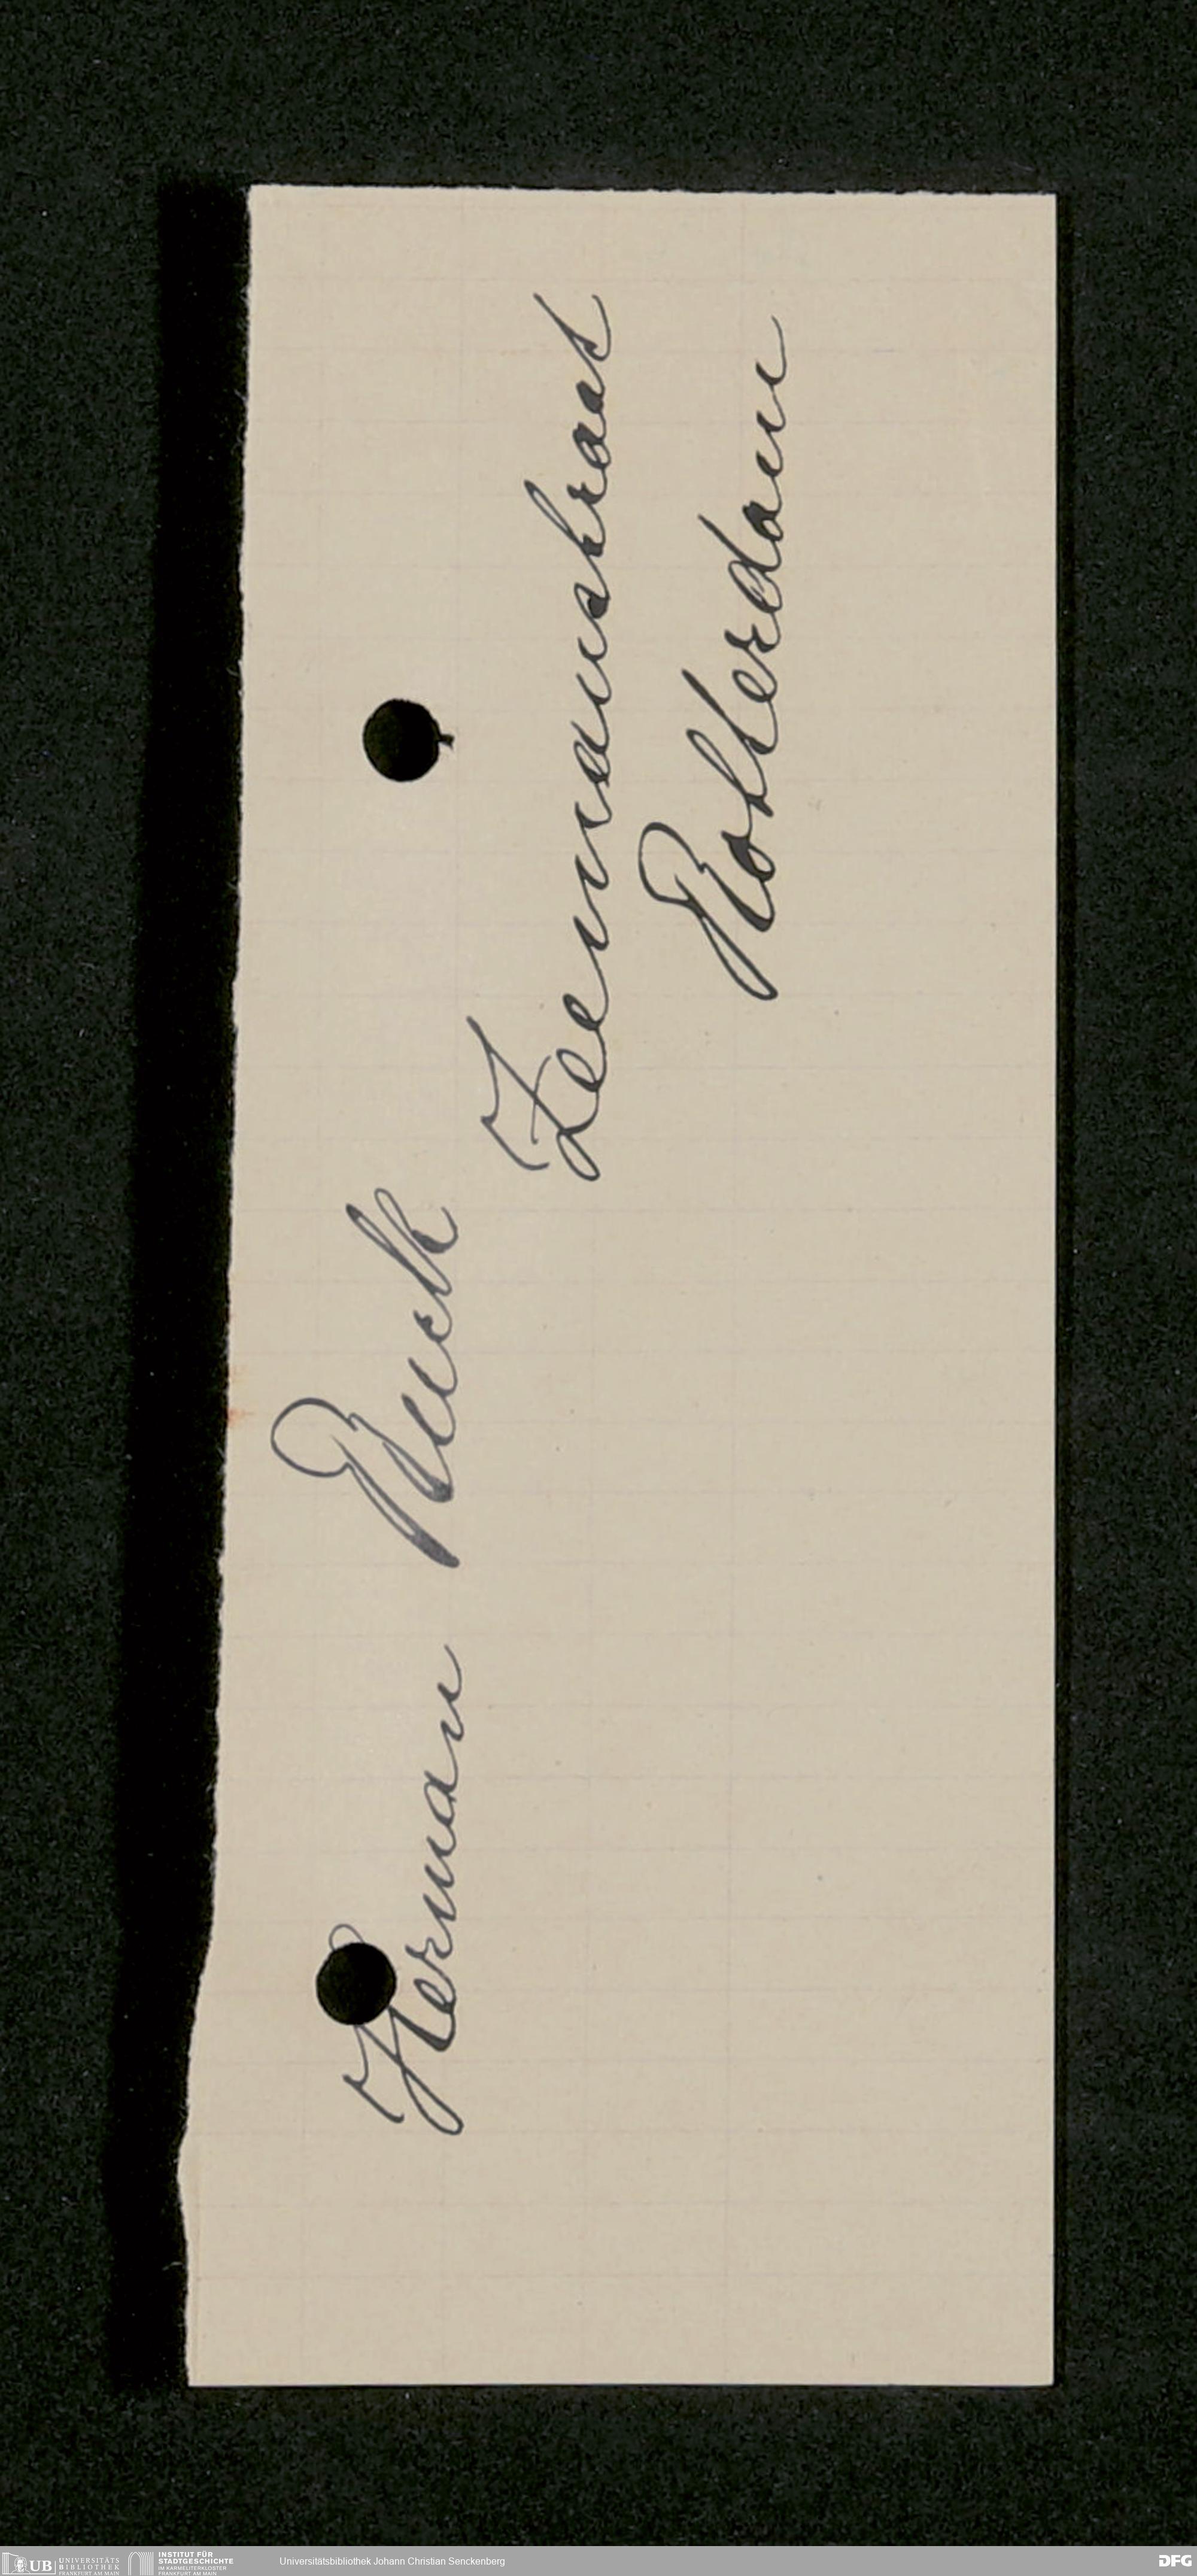 Herman Ruelk
Zeemanskraat
Rotterdam
UB UNIVERSITÄTS BIBLIOTHEK FRANKFURT AM MAIN
INSTITUT FÜR STADTGESCHICHTE IM KARMELITERKLOSTER FRANKFURT AM MAIN
Universitätsbibliothek Johann Christian Senckenberg
DFG